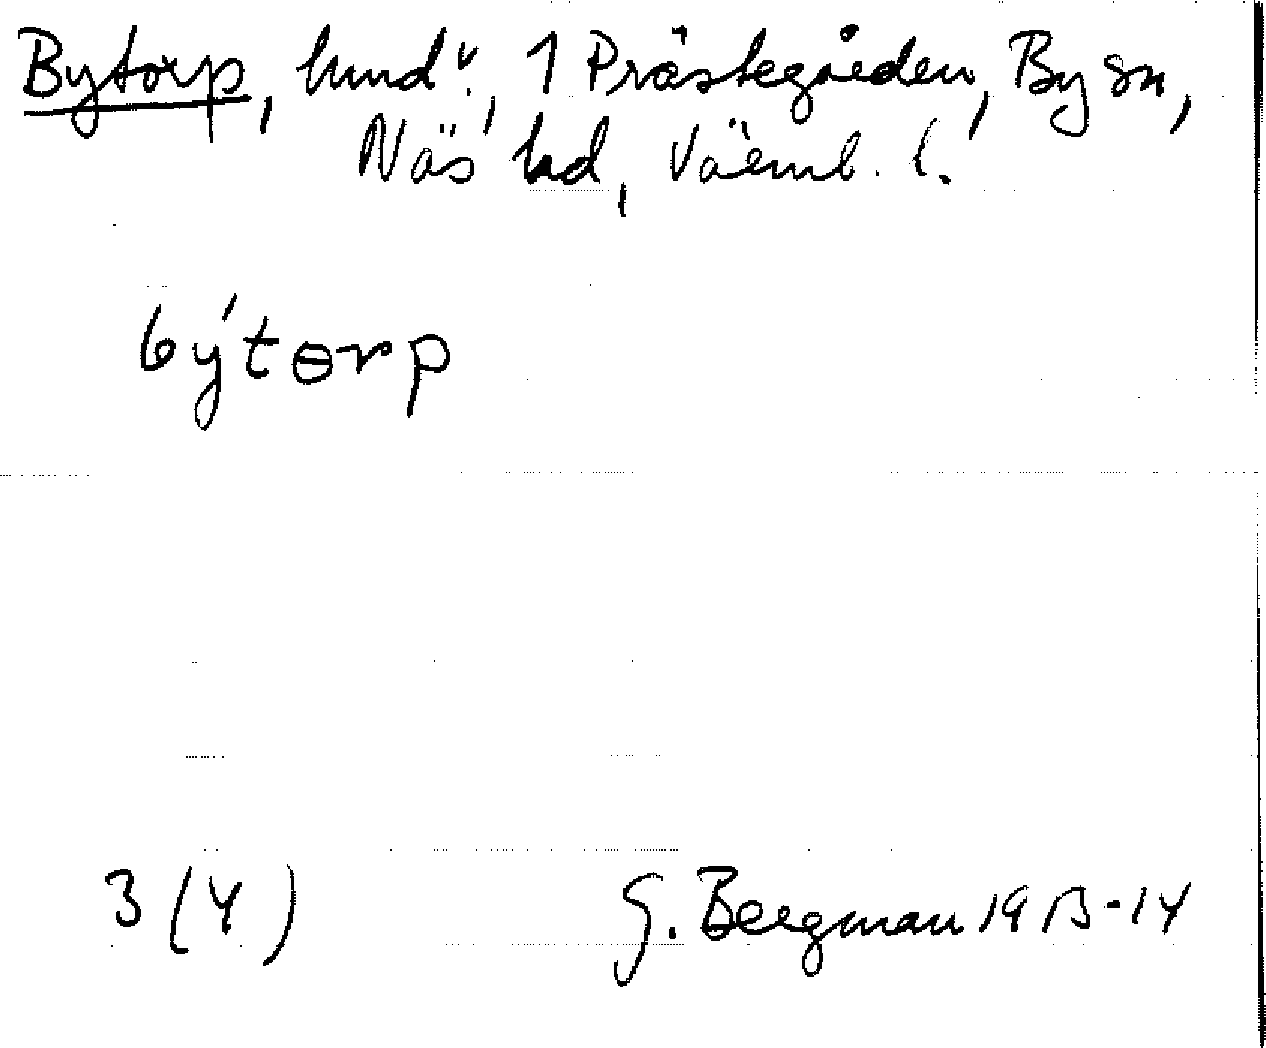 Bytorp, hmd u., 1 Prästegården, By sn,
Näs hd, Värml. l.
býtɵrp
3 (4)
G. Bergman 1913-14